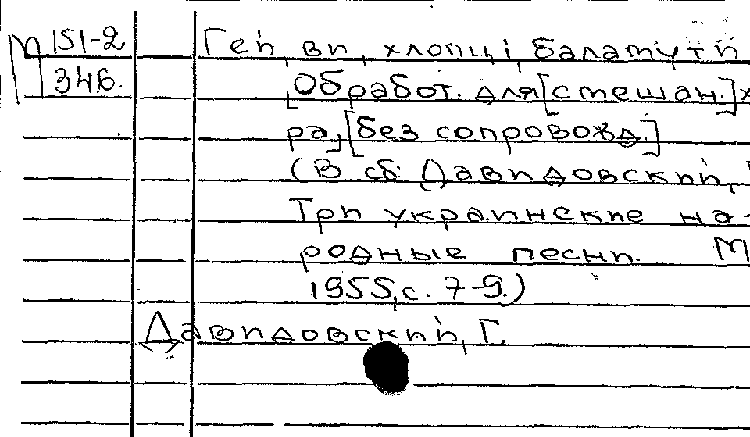 П 151-2
346.
Гей, ви, хлопці, баламути
[Обработ. для [смешан.] х
ра, [без сопровожд.]
(В сб. Давидовский,
Три украинские на-
родные песни. М
1955, с. 7-9.)
Давидовский, Г.